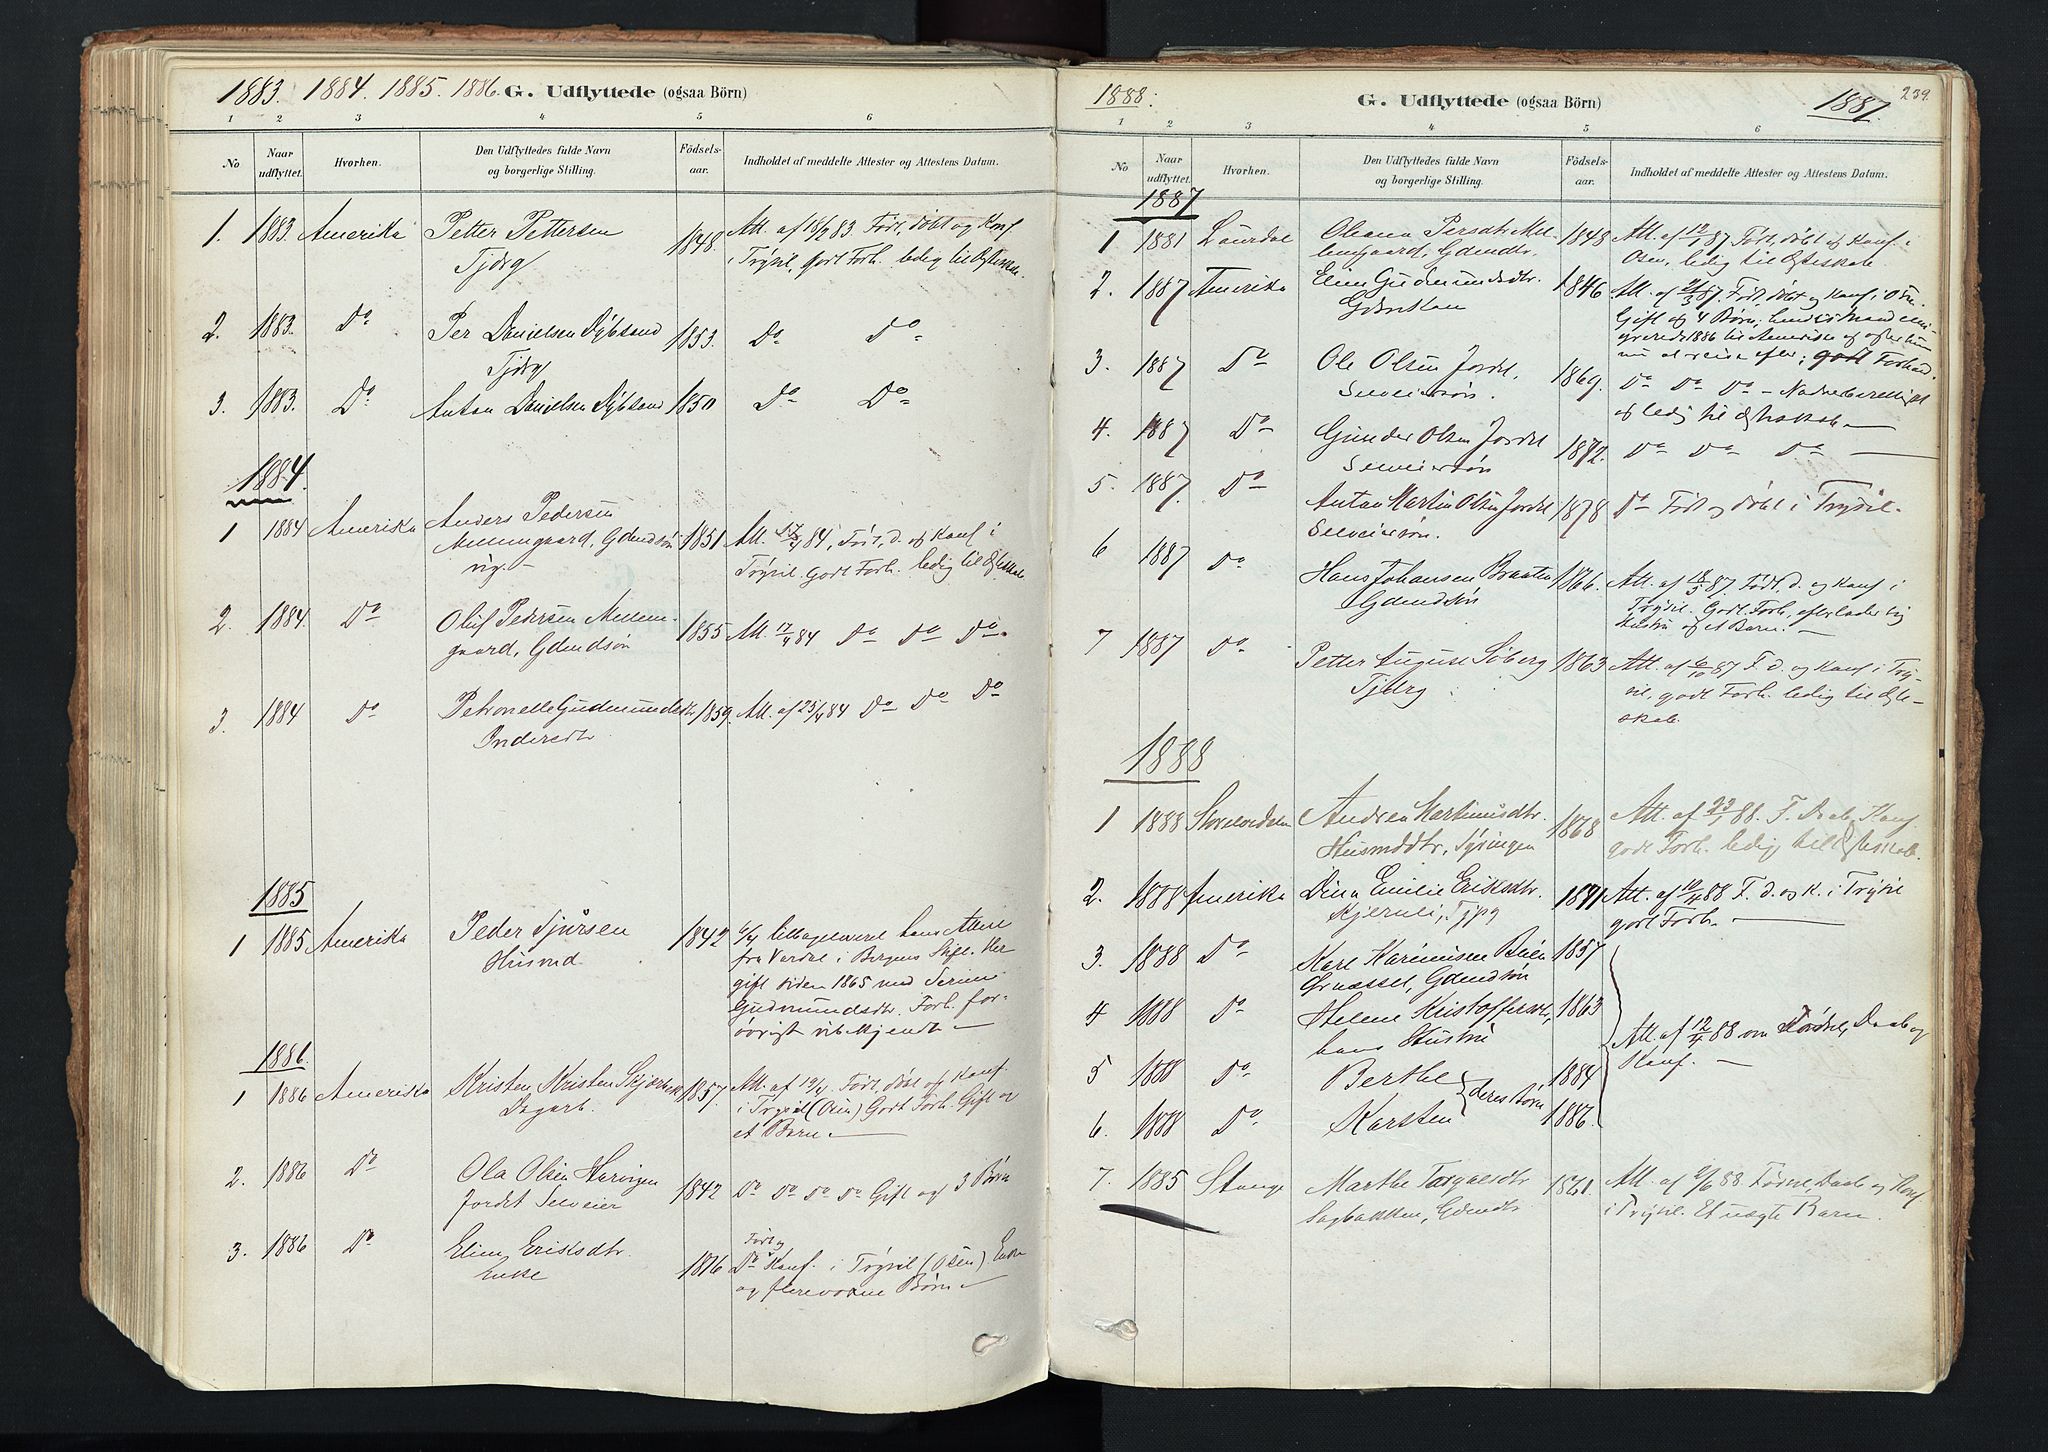 1883. 1884. 1885. 1886. G. Udflyttede (ogsaa Börn)
1 2 3 4 5 6
No Naar udflyttet. Hvorhen. Den Udflyttedes fulde Navn og borgerlige Stilling. Födsels-aar. Indholdet af meddelte Attester og Attestens Datum.
1. 1883. Amerika Petter Pettersen 1848. Att. af 18/2 83. Født, døbt og Konf.
Tjdrg i Trysil, godt Forh. ledig til Ægteskab.
2. 1883. Do Per Danielsen 1853. Do Do
Tjdrg
3. 1883. Do Anton Danielsen 1850 Do Do
1884.
1 1884 Amerika Anders Pedersen 1851 Att. 84, Født, d. og Konf i
Mellemgaard, Gdmdsøn Trysil. Godt Forh. ledig til Ægteskab
2. 1884. Do Oluf Pedersen Mellem- 1855 Att. 17/4 84 Do Do Do
gaard, Gdmdsøn
3. 1884 Do Petronelle Gudmundsdtr 1859. Att. af 25/4 84 Do Do Do
Indersdtr
1885
1 1885 Amerika Peder Sjursen 1842 tilbageleveret hans Attest
Husmd. fra i Bergens Stift. Her
gift siden 1865 med
Gudmundsdtr. Forh. for-
øvrigt ubekjendt
1886.
1 1886 Amerika Kristen Kristensen 1857. Att. af Født, døbt og Konf.
Dagarb. i Trysil (Osen) Godt Forh. Gift og
et Barn.
2. 1886 Do Ola Olsen 1842 Do Do Do Do Gift og 3 Børn
Jordet Selveier
3. 1886 Do Eline Eriksdtr. 1816 Født og
Enke Do Konf. i Trysil (Osen) Enke
og flere voxne Børn
1888. G. Udflyttede (ogsaa Börn) 1887. 239.
1 2 3 4 5 6
No Naar udflyttet. Hvorhen. Den Udflyttedes fulde Navn og borgerlige Stilling. Födsels-aar. Indholdet af meddelte Attester og Attestens Datum.
1887
1 1881 Laurdal Oleana Persdtr Mel- 1848 Att. af 12/1 87 Født, døbt og Konf. i
lemgaard, Gdmdtr. Osen, ledig til Ægteskab
2. 1887 Amerika Eline Gudmundsdtr. 1846 Att. af 21/3 87. Født, døbt og Konf i Osen.
Gift og 4 Børn, hendes Mand emi-
grerede 1886 til Amerika og agter hun
nu at reise efter; godt Forhold.
3. 1887 Do Ole Olsen Jordet, 1869. Do Do Do
Selveiersøn. og ledig til Ægteskab
4. 1887 Do Gunder Olsen Jordet 1872. Do Do Do
Selveiersøn
5. 1887. Do Anton Martin Olsen Jordet 1878 Do Født og døbt i Trysil.
Selveiersøn.
6 1887 Do Hans Johansen Braaten 1866. Att. af 18/5 87. Født, d. og Konf i
Gdmdsøn Trysil. Godt Forh. efterlader sig
Hustru og et Barn.
7 1887 Do Petter August Søberg 1863 Att. af 6/10 87 F. d. og Konf i Try-
Tjdrg sil, godt Forh. ledig til Ægte-
skab.
1888
1 1888 Storelvedalen Andrea Martinusdtr. 1868 Att. af 23/1 88. F. Daab, Konf.
Husmddtr, godt Forh. ledig til Ægteskab.
2. 1888 Amerika Dina Emilie Eriksdtr. 1871 Att. af 12/4 88 F. d. og K. i Trysil
Kjernli, Tjpg godt Forh.
3. 1888 Do Karl 1857
Gdmdsøn
4 1888 Do Helene Kristoffersdtr, 1863 Att. af 12/4 88 om Fødsel, Daab og
hans Hustru Konf.
5 1888 Do Berthe 1884
6. 1888 Do Karsten deres Børn 1886.
7. 1885 Stange Marthe 1861. Att. af 9/6 88 Fødsel, Daab og Konf
Sagbakken, Gdmdtr i Trysil. Et uægte Barn.